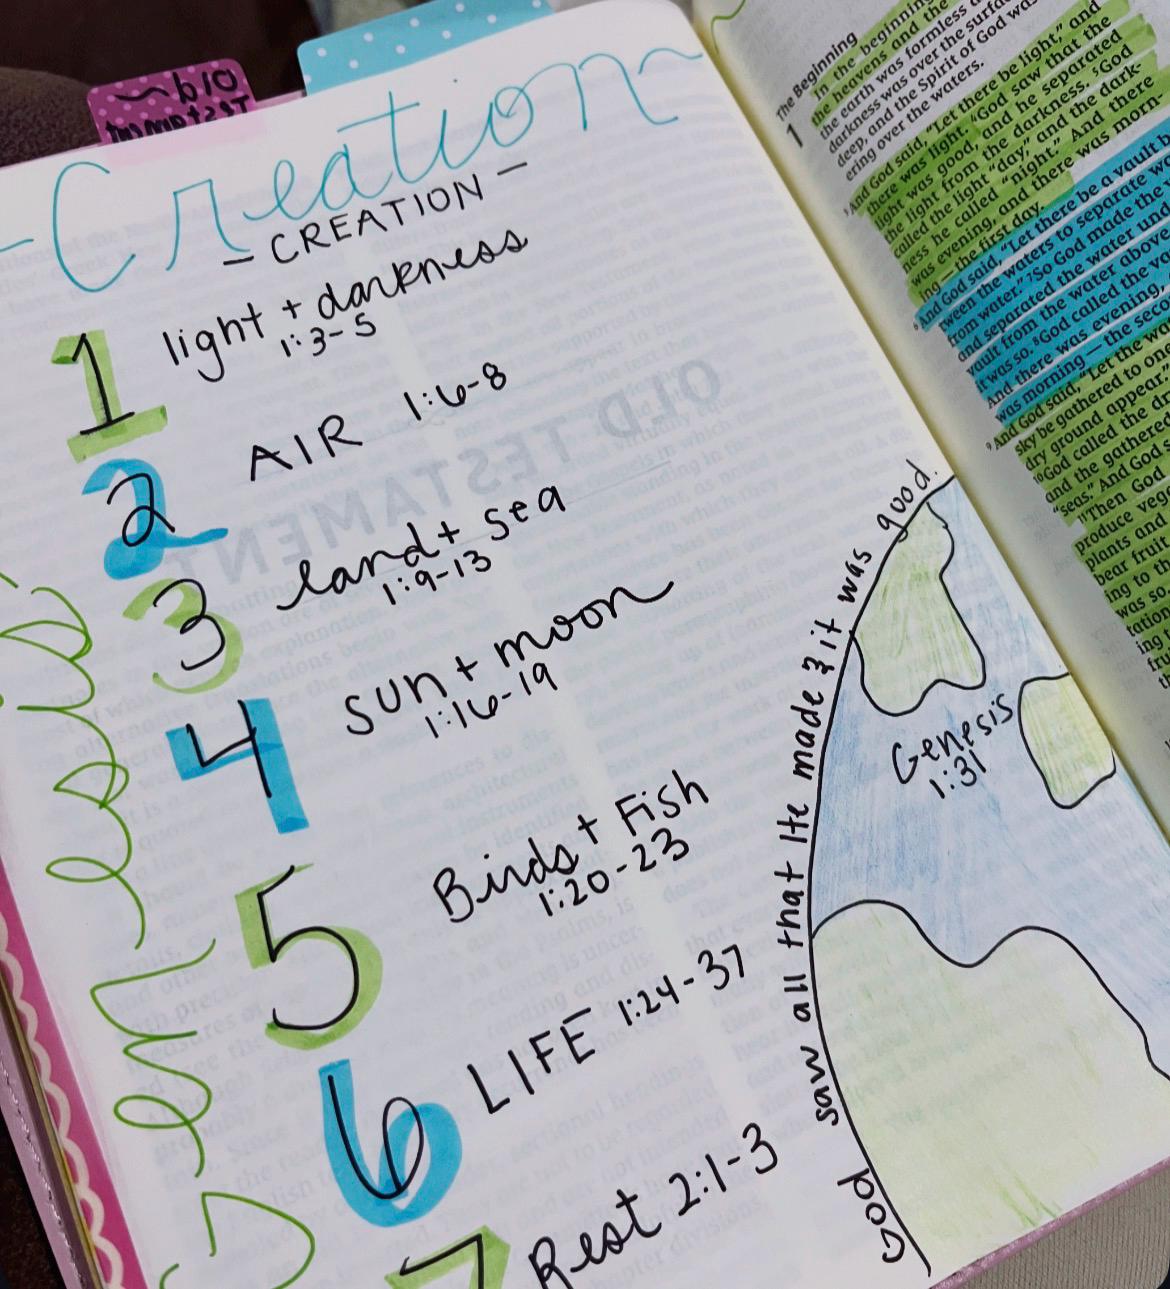 Creation
- CREATION -
1 light + darkness
1:3-5
2 AIR 1:6-8
3 land + sea
1:9-13
4 sun + moon
1:16-19
5 Birds + Fish
1:20-23
6 LIFE 1:24-37
7 Rest 2:1-3
Genesis
God saw all that He made & it was good.
Genesis
1:31
OLD TESTAMENT
The Beginning
1 In the beginning
the heavens and the
the earth was formless
darkness was over the surfa
deep, and the Spirit of God was
ering over the waters.
3And God said, "Let there be light," and
there was light. 4God saw that the
light was good, and he separated
the light from the darkness. 5God
called the light "day," and the dark-
ness he called "night." And there
was evening, and there was morn-
ing—the first day.
6And God said, "Let there be a vault b
tween the waters to separate wa
from water." 7So God made the
and separated the water und
vault from the water above
it was so. 8God called the va
And there was evening,
was morning—the seco
9And God said, "Let the wa
sky be gathered to one
dry ground appear."
10God called the dr
and the gathered
"seas." And God
11Then God
produce vege
plants and
bear fruit
ing to th
was so
tation
ing t